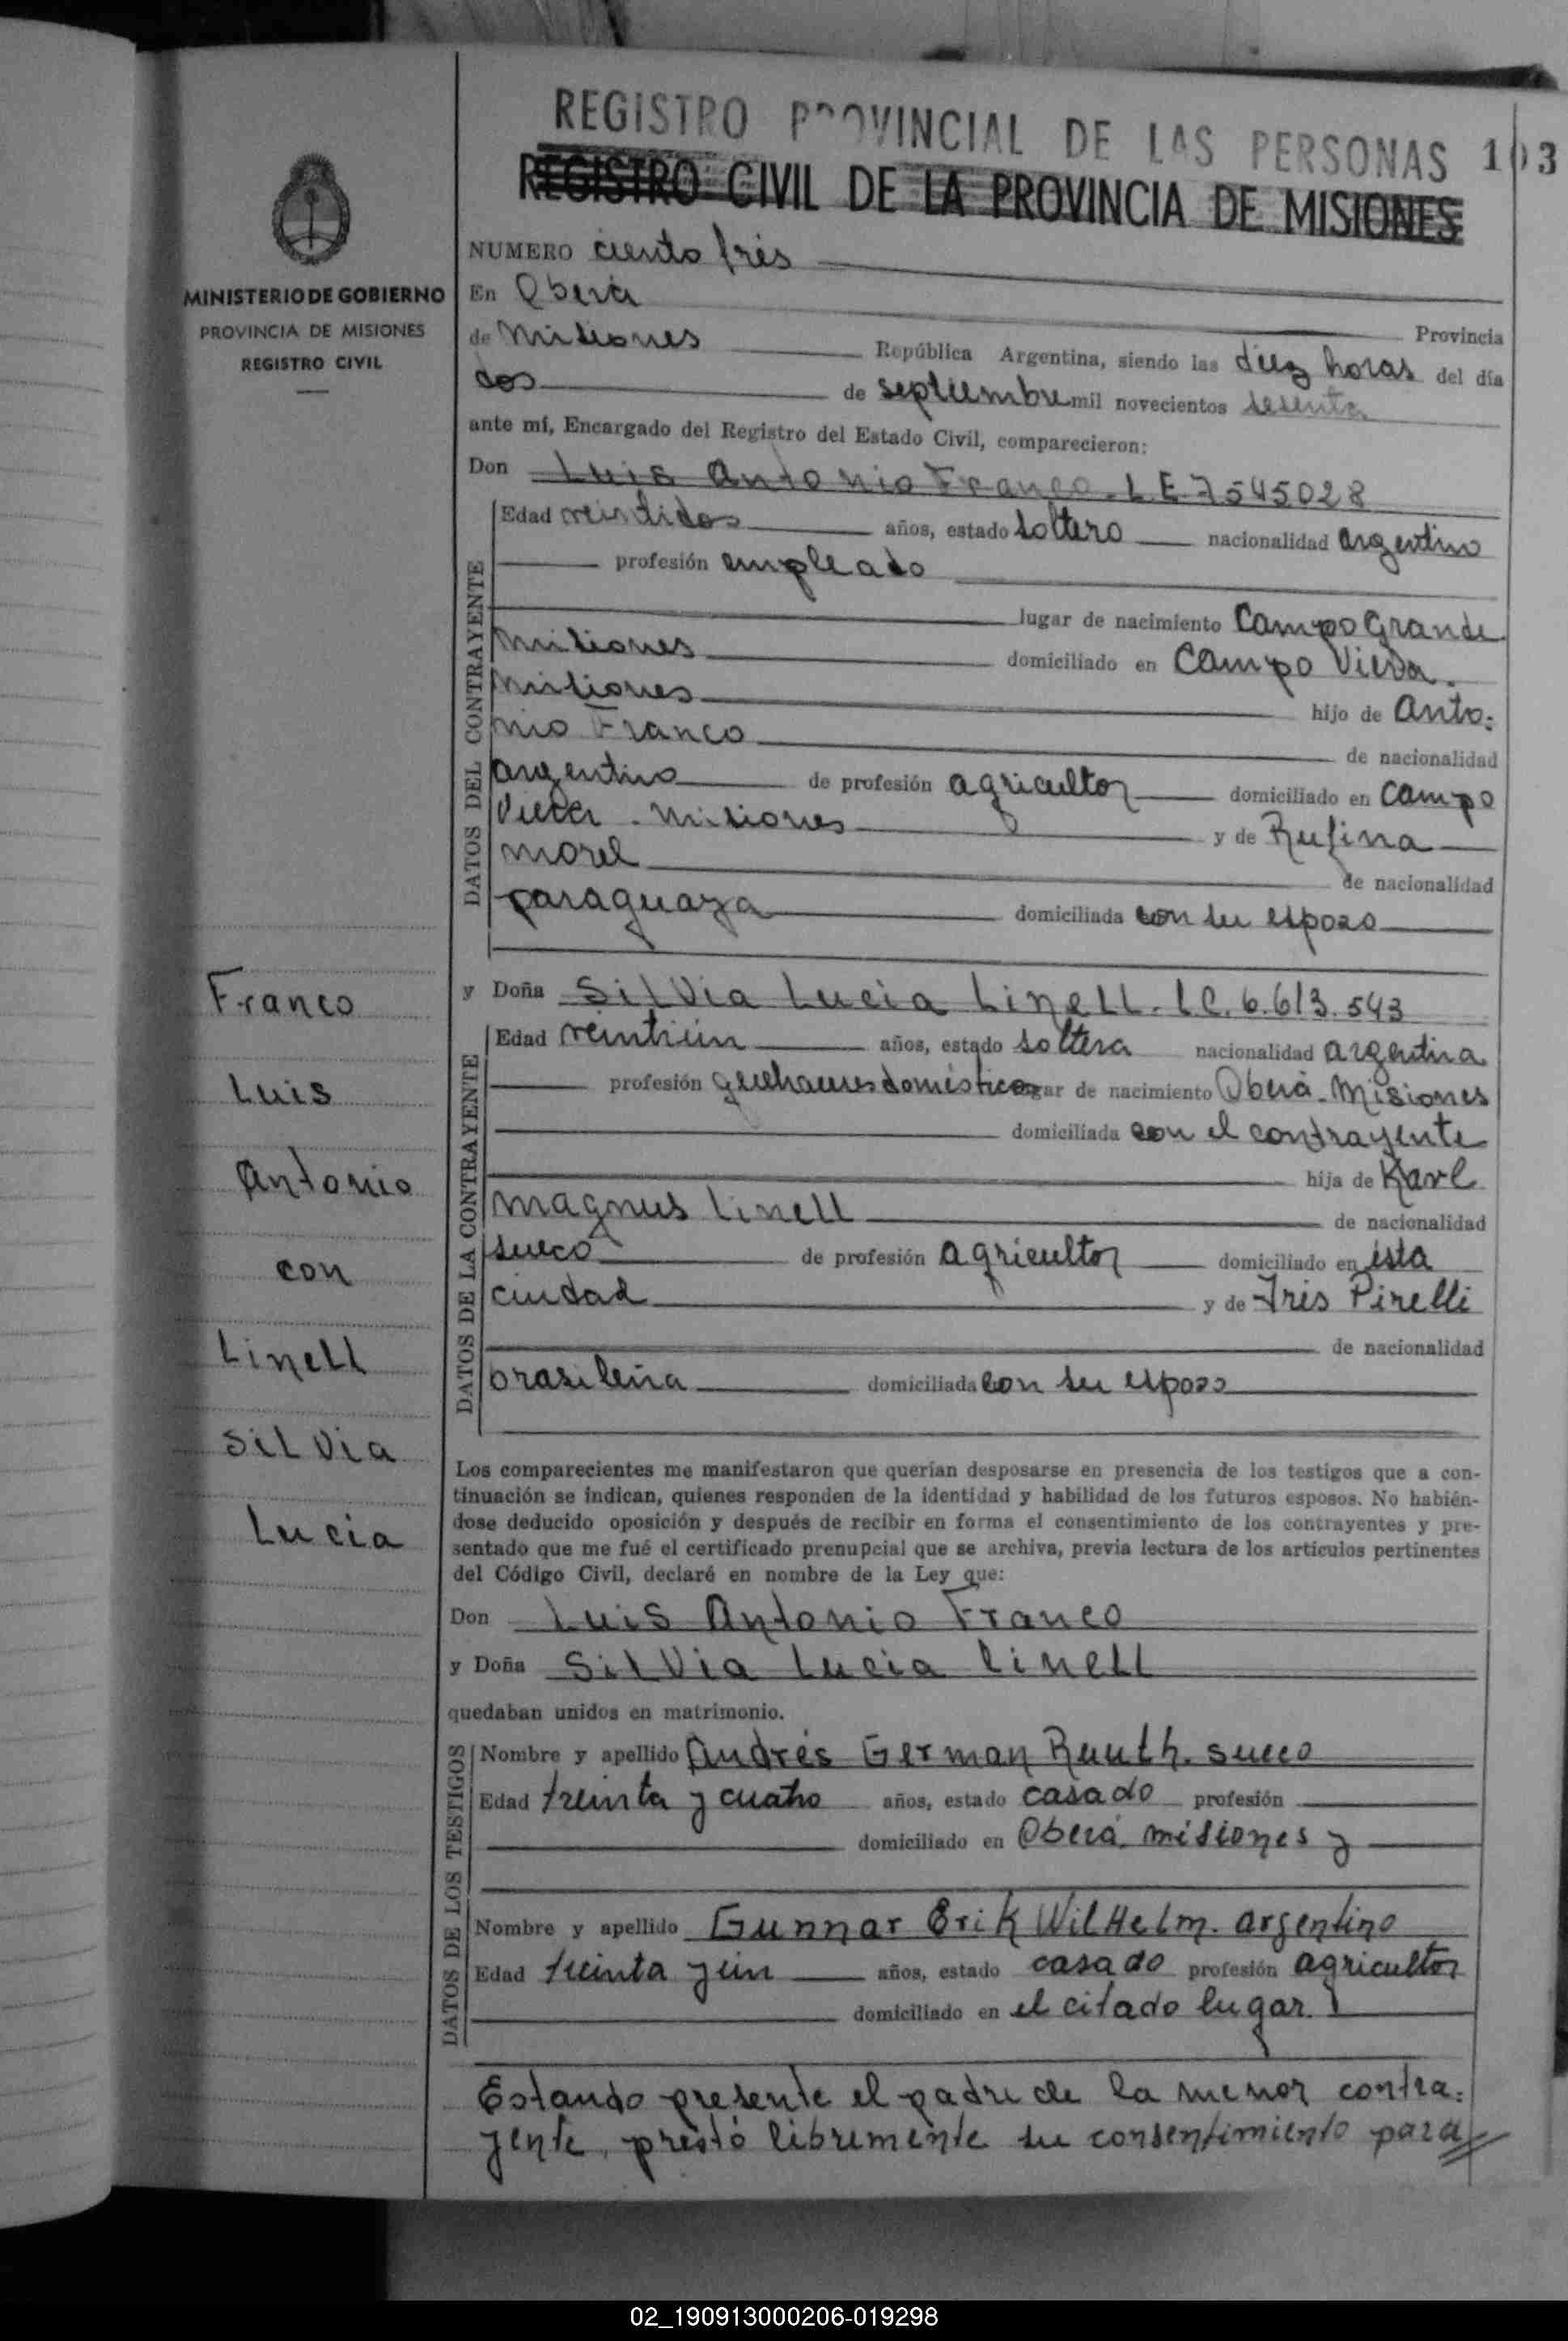 REGISTRO PROVINCIAL DE LAS PERSONAS 103
REGISTRO CIVIL DE LA PROVINCIA DE MISIONES
MINISTERIO DE GOBIERNO
PROVINCIA DE MISIONES
REGISTRO CIVIL
NUMERO ciento tres
En Oberá Provincia
de Misiones República Argentina, siendo las diez horas del día
dos de septiembre mil novecientos sesenta
ante mí, Encargado del Registro del Estado Civil, comparecieron:
Don Luis Antonio Franco. L E 7545028
DATOS DEL CONTRAYENTE
Edad veintidos años, estado soltero nacionalidad argentino
profesión empleado
lugar de nacimiento Campo Grande
Misiones domiciliado en Campo Viera.
Misiones hijo de Anto:
nio Franco de nacionalidad
argentino de profesión agricultor domiciliado en Campo
Viera. Misiones y de Rufina
Morel de nacionalidad
paraguaya domiciliada con su esposo
y Doña Silvia Lucia Linell. L C. 6.613.543
DATOS DE LA CONTRAYENTE
Edad veintiún años, estado soltera nacionalidad argentina
profesión domésticos lugar de nacimiento Oberá. Misiones
domiciliada con el contrayente
hija de Karl
Magnus Linell de nacionalidad
sueco de profesión agricultor domiciliado en ésta
ciudad y de Iris Pirelli
de nacionalidad
brasileña domiciliada con su esposo
Franco
Luis
Antonio
con
Linell
Silvia
Lucia
Los comparecientes me manifestaron que querían desposarse en presencia de los testigos que a con-
tinuación se indican, quienes responden de la identidad y habilidad de los futuros esposos. No habién-
dose deducido oposición y después de recibir en forma el consentimiento de los contrayentes y pre-
sentado que me fué el certificado prenupcial que se archiva, previa lectura de los artículos pertinentes
del Código Civil, declaré en nombre de la Ley que:
Don Luis Antonio Franco
y Doña Silvia Lucia Linell
quedaban unidos en matrimonio.
DATOS DE LOS TESTIGOS
Nombre y apellido Andrés German Ruuth. sueco
Edad treinta y cuatro años, estado casado profesión
domiciliado en Oberá. misiones y
Nombre y apellido Gunnar Erik Wilhelm. argentino
Edad treinta y un años, estado casado profesión agricultor
domiciliado en el citado lugar.
Estando presente el padre de la menor contra:
yente, prestó libremente su consentimiento para
02_190913000206-019298